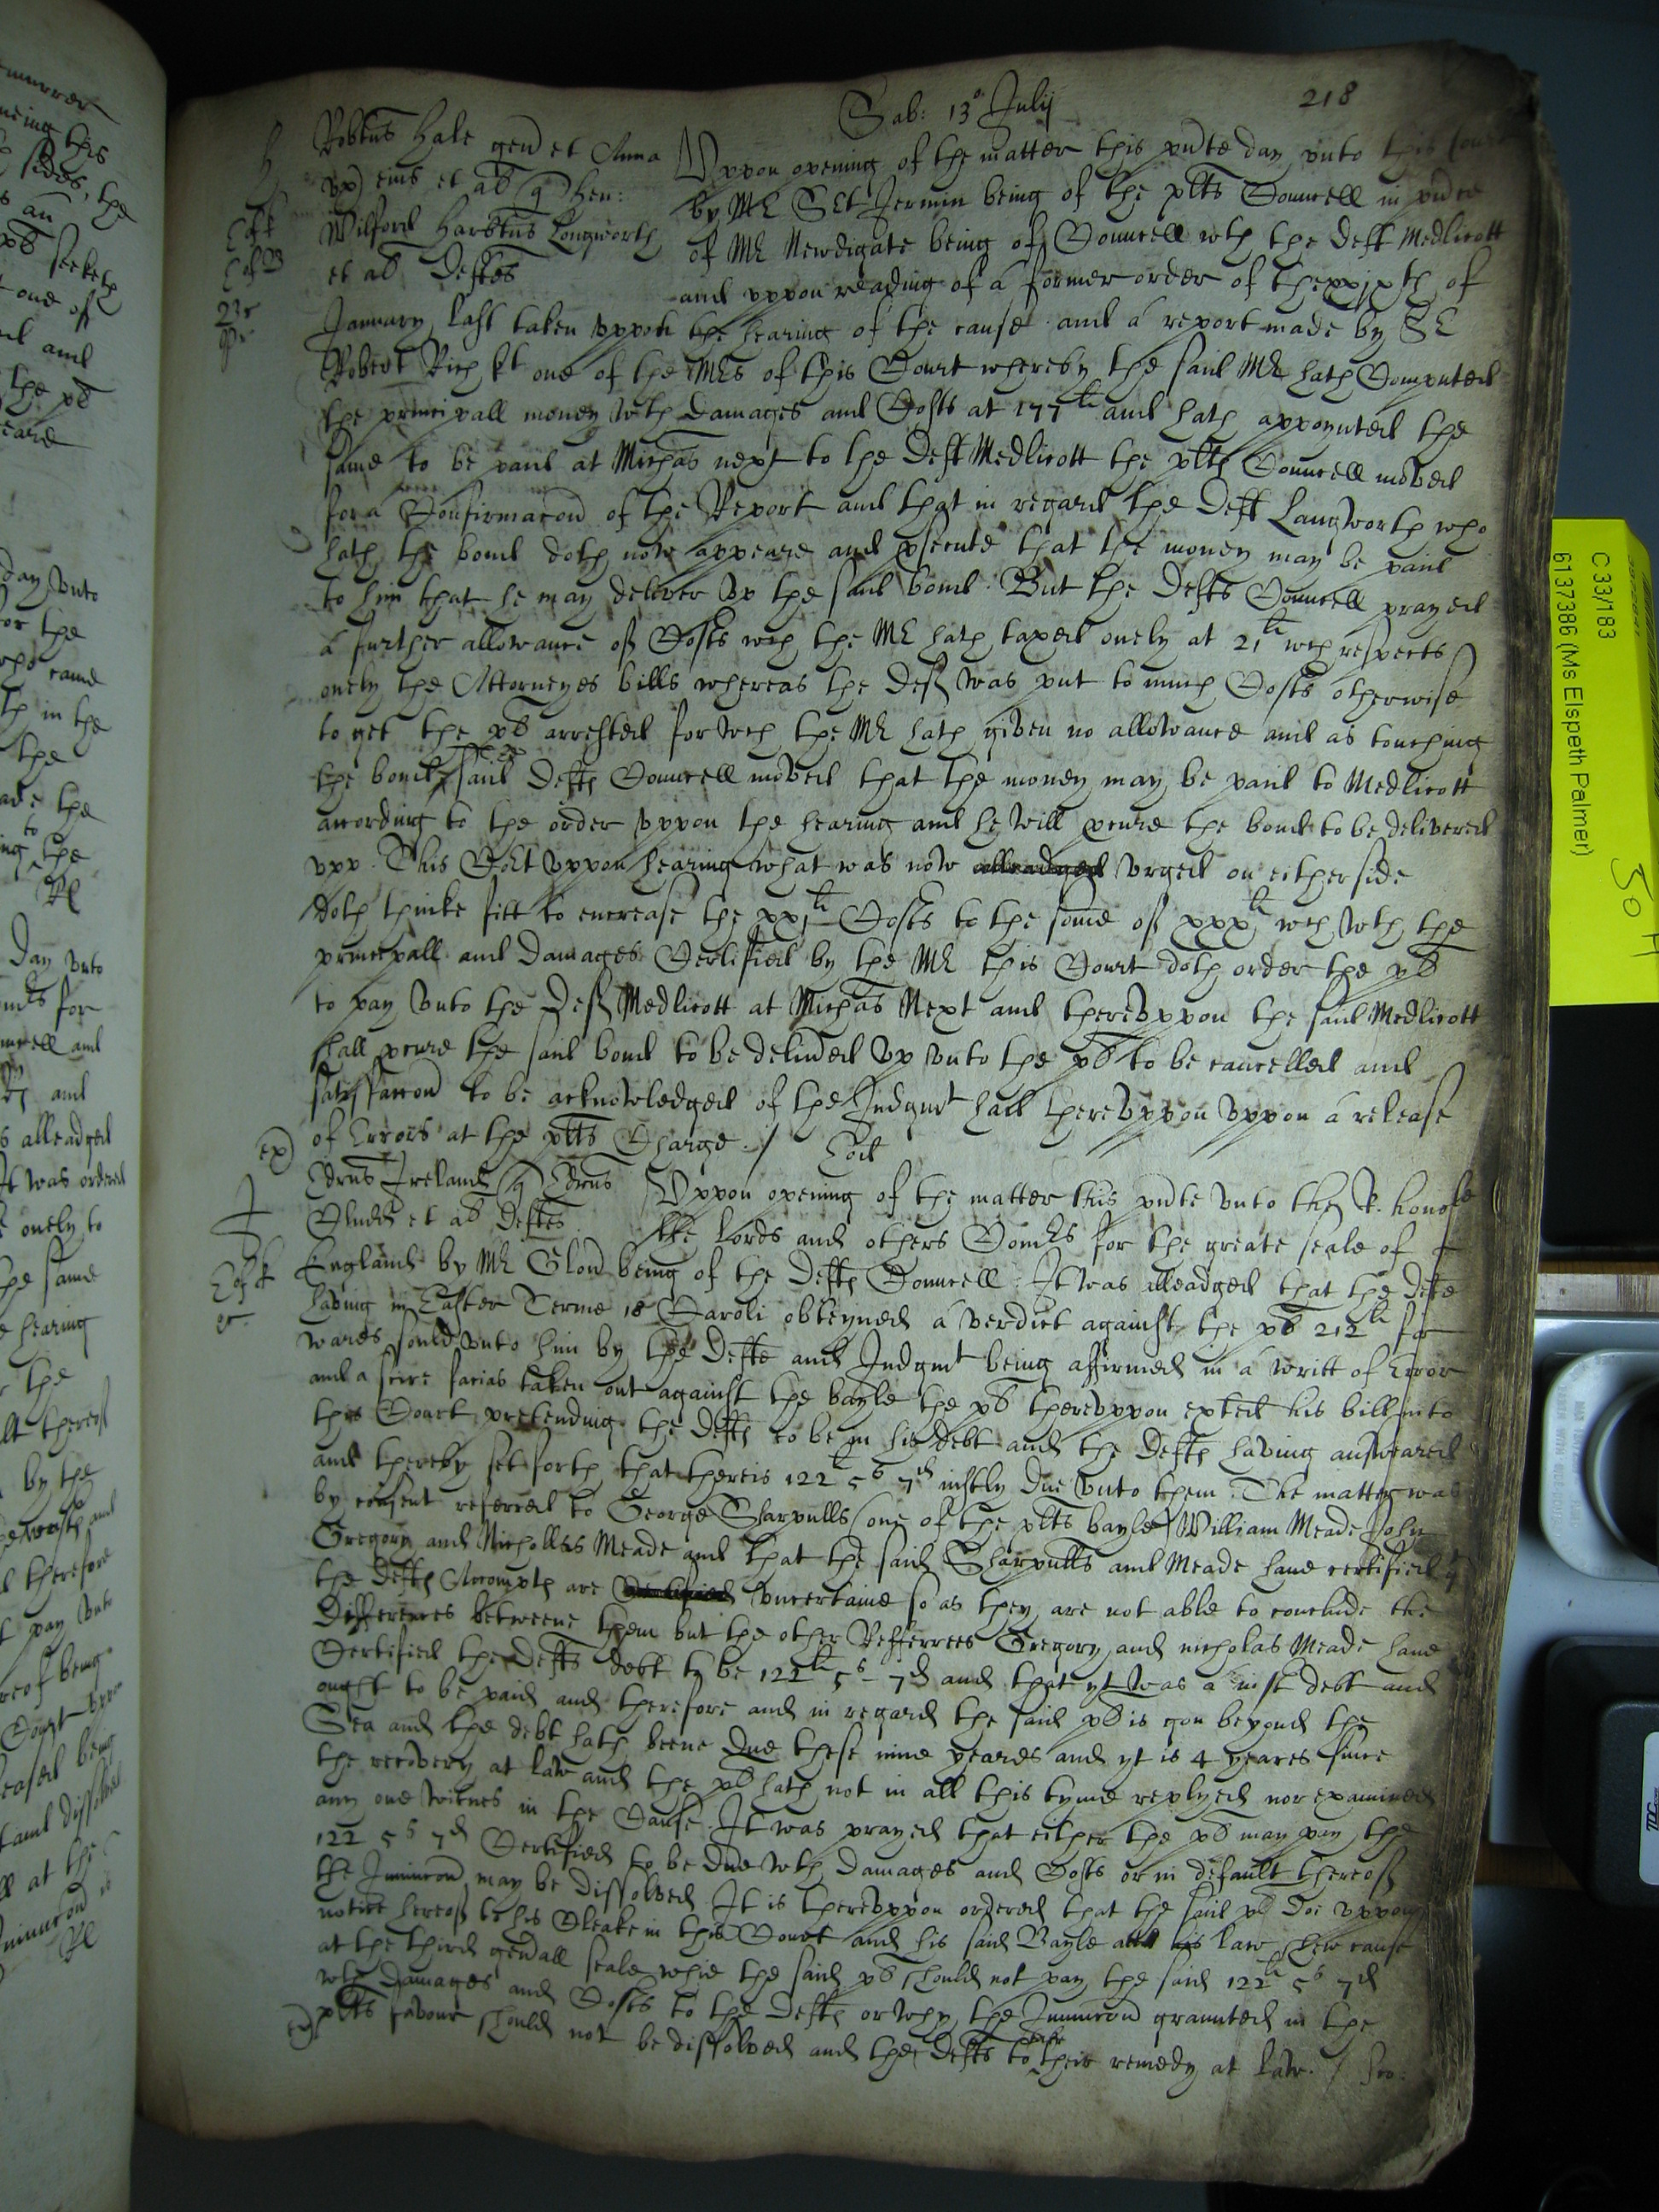 218
Sab: 13o Julij
Robtus Hale gen et Anna
ux eius et al q Hen:
Milford Longworth
et al Deftes
Vppon opening of the matter this pnte day vnto this Court
by Mr Sert Jermin being of the plts Councell in pnce
of Mr Newdigate being of Councell wth the deft Medlicott
and vppon reading of a former order of the xxixth of
January last taken vppon the hearing of the cause and a report made by Sr
Robert Rich kt one of the Mrs of this Court whereby the said Mr hath Computed
the principall money wth Damages and Costs at 177li and hath appoynted the
same to be paid at Michas next to the Deft Medlicott the plts Councell moved
for a Confirmacon of the Report and that in regard the Deft Langworth who
hath the bond doth now appeare and psecute that the money may be paid
to him that he may deliver vp the said bond. But the Defts Councell prayed
a further allowance of Costs wch the Mr hath taxed onely at 21li wch respects
onely the Attorneyes bills whereas the Deft was put to much Costs otherwise
to get the pl arrested for wch the Mr hath given no allowance and as touching
the bond said Defts Councell moved that the money may be paid to Medlicott
according to the order vppon the hearing and he will pcure the bond to be delivered
vpp. This Cort vppon hearing what was now alleadged vrged on either side
doth thinke fitt to encrease the xxjli Costs to the some of xxxli wch wth the
principall and Damages Certified by the Mr this Court doth order the pl
to pay vnto the Deft Medlicott at Michas Next and therevppon the said Medlicott
shall pcure the said bond to be deliued vp vnto the pl to be cancelled and
satisfaccon to be acknowledged of the Judgmt had therevppon vppon a release
of Errors at the plts Charge. /
ex)
Edrus Ireland q Edrus
et al Deftes
Vppon opening of the matter this pnte vnto the R. honoble
the Lords and others Comrs for the greate seale of
England by Mr being of the Defts Councell. It was alleadged that the Defte
having in Easter Terme 18 Caroli obteyned a verdict against the pl 212li for
wares sould vnto him by the Defte and Judgmt being affirmed in a writt of Error
and a scire facias taken out against the bayle the pl therevppon exted his bill into
this Court pretending the Defts to be in his debt and the Defts having answeared
and thereby set forth that there is 122li 5s 7d iustly due vnto them. The matter was
by consent referred to George Sharpulls (one of the plts bayle) William Meade John
Gregory and Nichollas Meade and that the said Sharpulls and Meade haue certified yt
the Defts Accompts are vncertaine so as they are not able to conclude the
Differences betweene them but the other Refferrees Gregory and nicholas Meade haue
Certified the Defts debt to be 122li 5s - 7d and that yt was a iust debt and
ought to be paid and therefore and in regard the said pl is gon beyond the
Sea and the debt hath beene due these nine yeares and yt is 4 yeares since
the recovery at law and the pl hath not in all this tyme replyed nor examined
any one witnes in the Cause. It was prayed that either the pl may pay the
122 5s 7d Certified to be due wth Damages and Costs or in default thereof
the Iniuncon may be dissolved. It is therevppon ordered that the said pl Doe vppon
notice hereof to his Cleake in this Court and his said Bayle att law shew cause
at the third genall seale whie the said pl should not pay the said 122li 5s 7d
wth Damages and Costs to the Defts or why the Iniuncon graunted in the
plts favour should not be dissolved and the Defts to take their remedy at law. /
C 33/183
6137386 (Ms Elspeth Palmer)